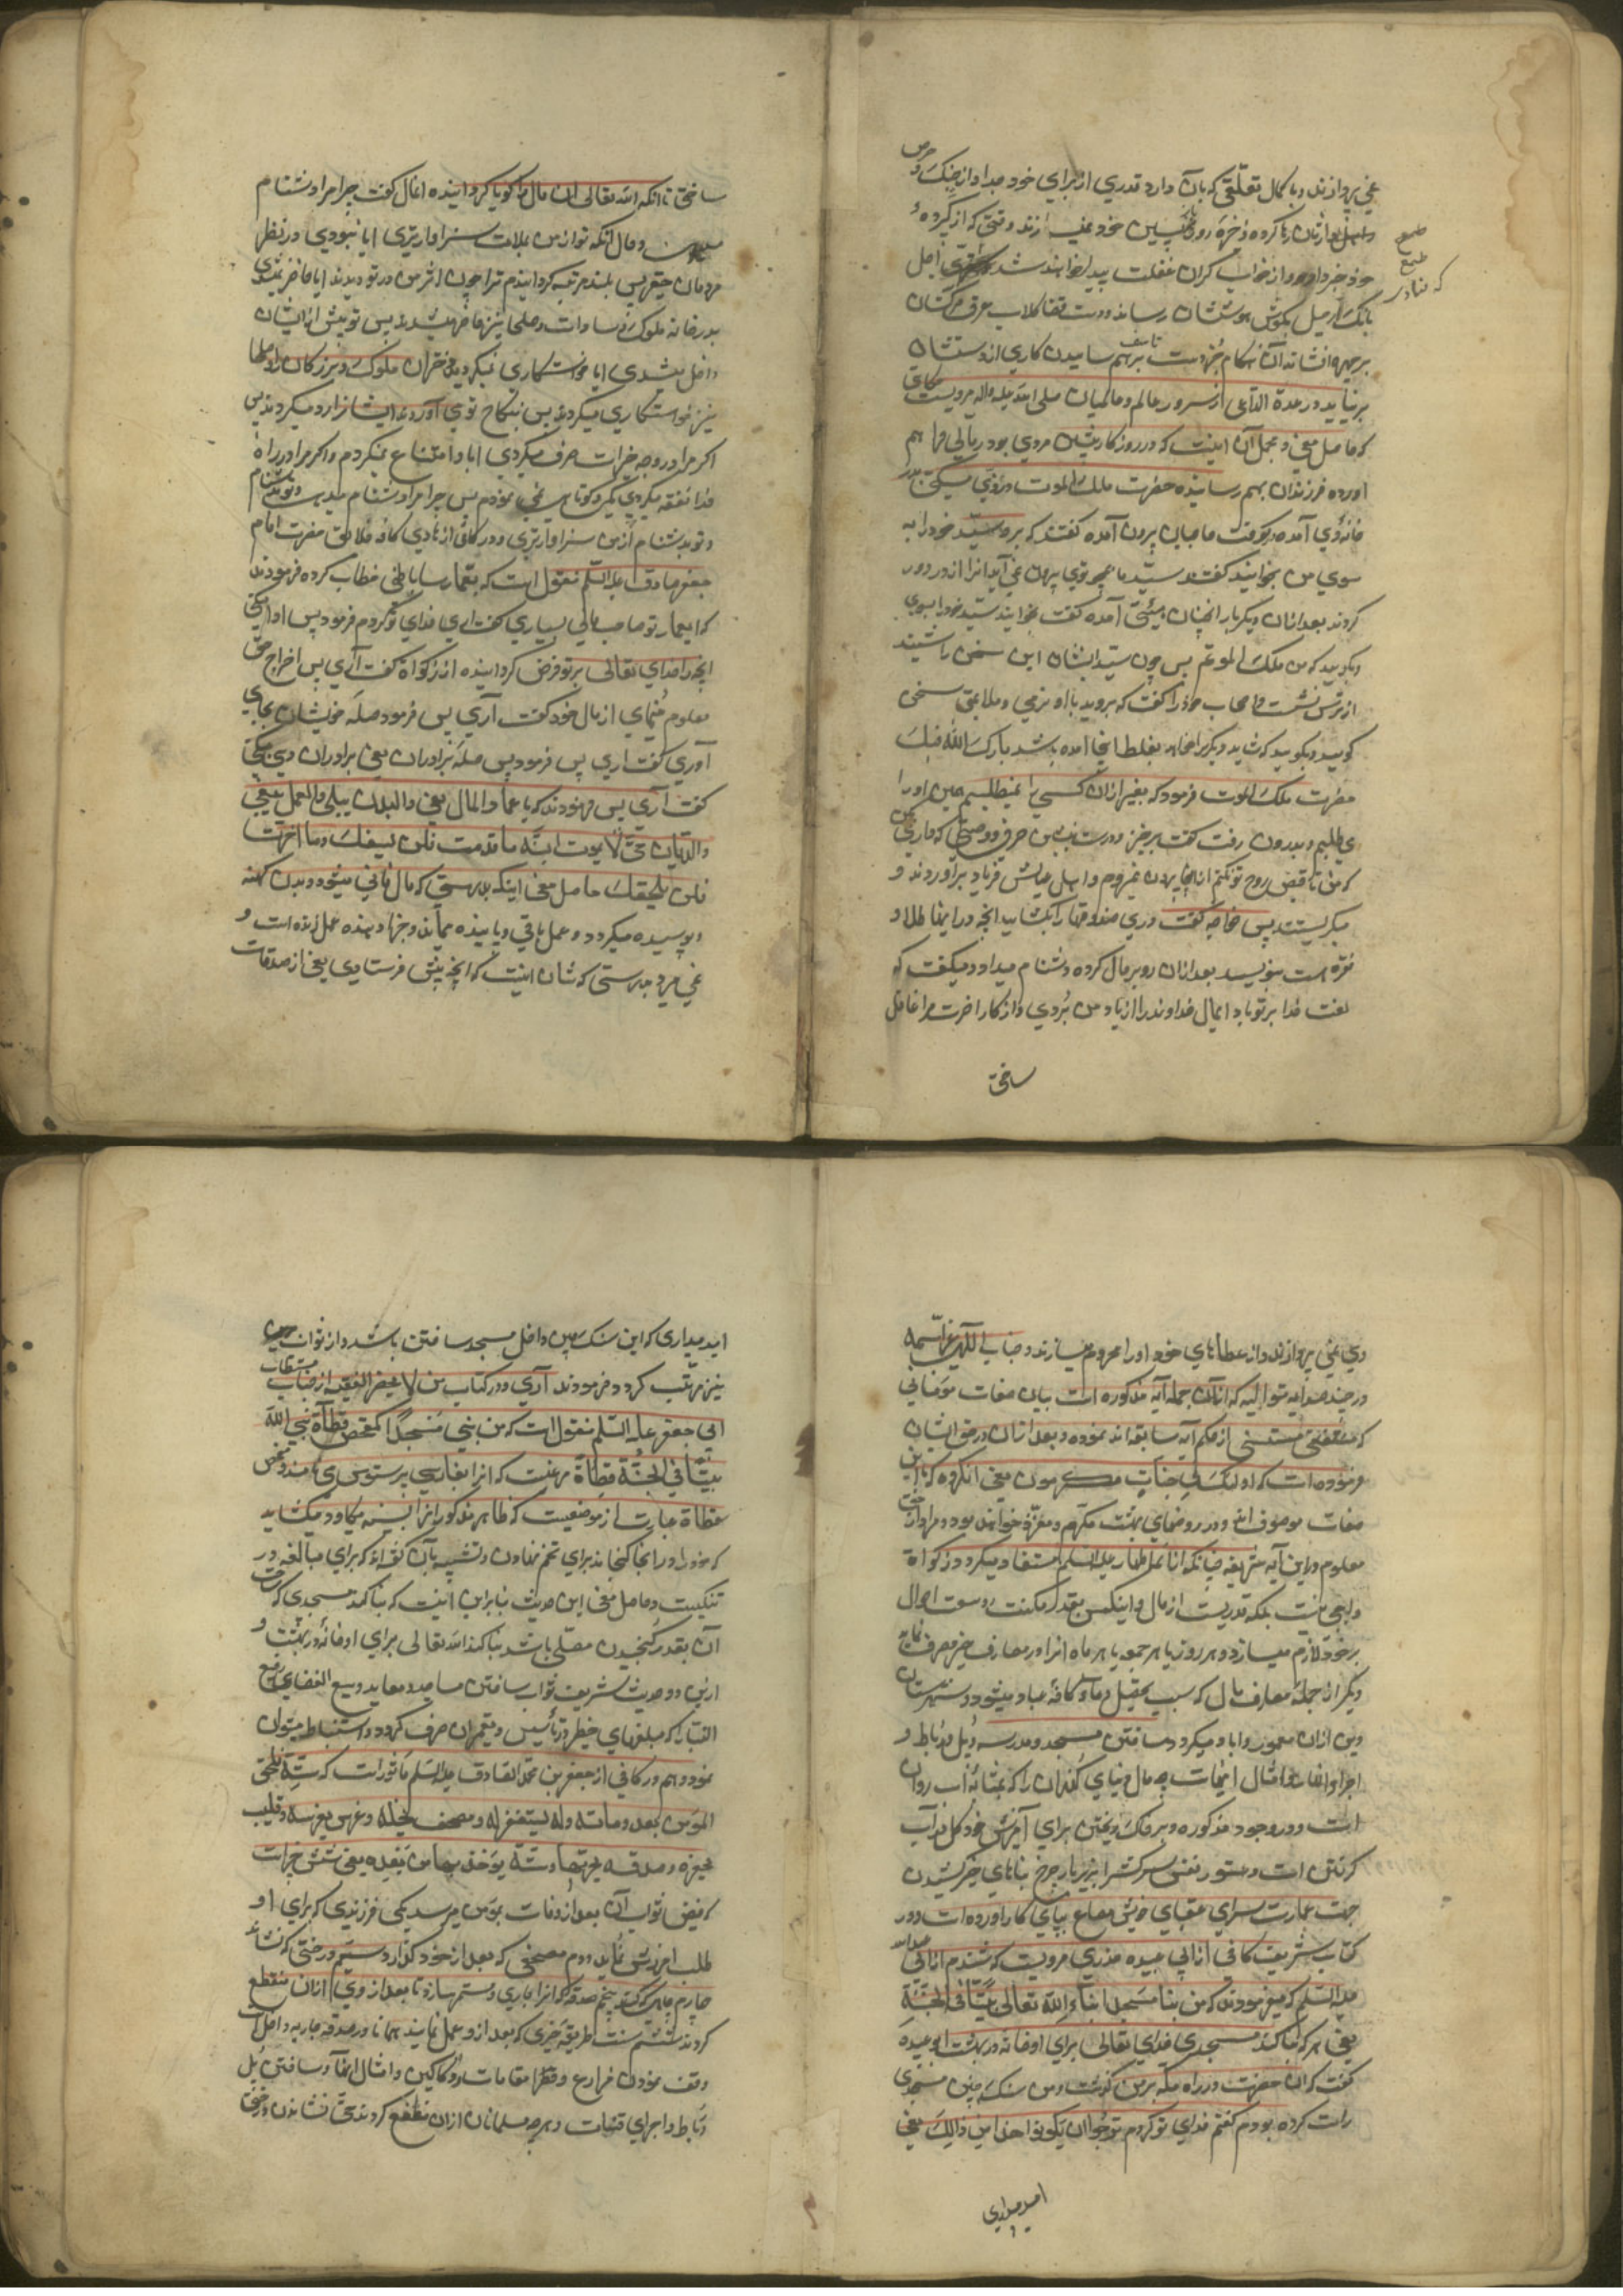 نمی پردازند و با کمال تعلقی که بآن دارد قدری از برای خود جدا و از چنک حرص
وارثان رها کرده ذخیره روز پسین خود نمی سازند وقتی که از کرده
خود خبردار و از خواب کران غفلت بیدار خواهند شد که اجل
بانک رحیل بکوش هوششان رساند و دست قضا کلاب مرک
بر چهره افشاند آن هنکام جز دست تأسف برهم ساییدن کاری از دستشان
برنیاید در عدة الداعی از سرور عالم و عالمیان صلی الله علیه و اله مرویست حکایتی
که حاصل معنی و مجمل آن اینست که در روزکار پیشین مردی بود و مالی فراهم
اورده فرزندان بهم رسانیده حضرت ملک الموت در زی مسکینی بدر
خانه وی آمده بکوفت حاجبان بیرون آمده گفت که برو سید خود را به
سوی من بخوانید گفتند سید ما بجهة توی بیرون نمی آید انرا از در دور
کردند بعد ازان دیکر بار بهمان هیئت آمده گفت بخوانید سید خود را بسوی
و بکویید که من ملک الموتم پس چون سید ایشان این سخن را شنید
از ترس نشست و اصحاب خود را گفت که بروید با او بنرمی و ملایمت سخن
کویید و بکویید که شاید دیکری را میخواهد بغلط اینجا آمده باشد بارک الله فیک
حضرت ملک الموت فرمود که بغیر از ان کسی را نمیطلبم همین او را
می طلبم و بدرون رفت گفت برخیز و وصیت کن که داری
که من تا قبض روح تو نکنم از اینجا بیرون نمیروم و اهل و عیالش فریاد براوردند و
میکریستند پس خواجه گفت در صندوقها را بکشایید انچه در اینها طلا و
نقره است بنویسید بعد ازان رو بر مال کرده دشنام میداد و میکفت که
لعنت خدا بر تو باد ای مال خداوند را از یاد من بردی و از کار اخرت مرا غافل
ساختی
ساختی تا انکه الله تعالی ان مال را کویا کردانیده انمال گفت چرا مرا دشنام
میدهی و حال انکه تو از من بملامت سزاوارتری ایا نبودی در نظر
مردمان حقیر پس بلند مرتبه کردانیدم ترا چون اثر من در تو دیدند ایا حاضر نمیشدی
بدر خانه ملوک و سادات و صلحا نیز حاضر میشدند پس تو پیش از ایشان
داخل میشدی ایا خواستکاری نمیکردی دختران ملوک و بزرکان را و صلحا
نیز خواستکاری میکردند پس بنکاح تو می آوردند و ایشانرا رد میکردند پس
اکر مرا در وجه خیرات صرف میکردی ابا و امتناع نمیکردم و اکر مرا در راه
خدا نفقه میکردی کمی و کوتاهی نمی نمودم پس چرا مرا دشنام میدهی
و تو بدشنام از من سزاوارتری و در کافی از هادی کافه خلایق حضرت امام
جعفر صادق علیه السلم منقول است که بعمار ساباطی خطاب کرده فرمودند
که ای عمار تو صاحب مالی بسیاری گفت اری فدای تو کردم فرمود پس ادا میکنی
انچه را خدای تعالی بر تو فرض کردانیده از زکوة گفت آری پس اخراج حق
معلوم مینمای از مال خود گفت آری پس فرمود صله خویشان بجای
آوری گفت اری پس فرمود پس صله برادران یعنی برادران دینی میکنی
گفت آری پس فرمودند که یا عمار المال یفنی والبدن یبلی والعمل یبقی
والدیان حی لا یموت انه ما قدمت فلن یسبقک وما اخرت
فلن یلحقک حاصل معنی اینکه بدرستی که مال فانی میشود و بدن کهنه
و پوسیده میکردد و عمل باقی و پاینده میماند و جزا دهنده عمل زنده است و
نمی میرد بدرستی که شان اینست که انچه پیش فرستادی یعنی از صدقات
وی نمی پردازند و از عطاهای خود او را محروم میسازند و جناب الهی عز اسمه
در چند آیه متوالیه که از ان جمله آیه مذکوره است بیان صفات مؤمنانی
که مستثنی از حکم آیه سابقه اند نموده و بعد ازان در حق ایشان
فرموده است که اولئک فی جنات مکرمون یعنی انکروه که باین
صفات موصوف اند در روضهای بهشت مکرم و معزز خواهند بود و مراد از حق
معلوم در این آیه شریفه چنانکه از ائمه اطهار علیهم السلم مستفاد میکردد زکواة
واجبی نیست بلکه قدریست از مال که اینکس بقدر مکنت و وسعت احوال
بر خود لازم میسازد و هر روز یا هر جمعه یا هر ماه انرا در مصارف خیر صرف نماید
دیکر از جمله مصارف مال که سبب تحصیل دعای کافه عباد میشود و شهرستان
دین ازان معمور و اباد میکردد ساختن مسجد و مدرسه و پل و رباط و
اجرای انهار و امثال اینهاست چه مال دنیای کذران را که بمثابه اب روان
است در وجوه مذکوره و بر خاک ریختن برای آمرزش خود کل در آب
کرفتن است و ستور نفس سرکشرا بزیر بار خرج بناهای خیر کشیدن
جهت عمارت سرای عقبای خویش مصالح بپای کار اوردن است و در
کتاب شریف کافی از ابی عبیده حذری مرویست که شنیدم از ابی عبدالله
علیه السلم که میفرمودند که من بنا مسجدا بناء الله تعالی بیتا فی الجنة
یعنی هر که بنا کند مسجدی خدای تعالی برای او خانه در بهشت ابو عبیده
گفت که ان حضرت در راه مکه بر من کذشت و من سنک چین مسجدی
راست کرده بودم گفتم فدای تو کردم نرجوا ان یکون هذا من ذالک یعنی
امید میداری
امید میداری که این سنک چین داخل مسجد ساختن باشد و از ثواب
نیز مرتب کردد فرمودند آری و در کتاب من لا یحضر الفقیه از جناب مستطاب
ابی جعفر علیه السلم منقول است که من بنی مسجدا کمفحص قطاة بنی الله
بیتا فی الجنة قطاة مرغیست که انرا بفارسی پرستو می نامند و مفحص
قطاة عبارت از موضعیست که طایر مذکور انرا بسینه میکاود و میکشاید
که خود را در انجا کنجاند برای تخم نهادن و تشبیه بان گفته اند که برای مبالغه در
تنکیست و حاصل معنی این حدیث بنابراین اینست که بنا کند مسجدی که وسعت
آن بقدر کنجیدن مصلی باشد بنا کند الله تعالی برای او خانه در بهشت و
ازین دو حدیث شریف ثواب ساختن مساجد و معابد وسیع الفضای رفیع
القباب که مبلغهای خطیر در تأسیس و تعمیر ان صرف کردد استنباط میتوان
نمود و هم در کافی از جعفر بن محمد الصادق علیه السلم ماثور است که ستة تلحق
المؤمن بعد وفاته ولد یستغفر له و مصحف یخلفه و غرس یغرسه و قلیب
یحفره و صدقه یجریها و سنة یؤخذ بها من بعده یعنی شش چیز است
که فیض ثواب آن بعد از وفات بمؤمن میرسد یکی فرزندی که برای او
طلب امرزش نماید دوم مصحفی که بعد از خود کذارد سیم درختی که نشاند
چهارم چاهی که کند پنجم صدقه که انرا جاری و مستمر سازد تا بعد از وی ازان منقطع
کردد ششم سنت و طریقه خیری که بعد از و عمل نمایند همانا در صدقه جاریه داخل است
وقف نمودن مزارع و حمامات و دکاکین و امثال انها و ساختن پل
و رباط و اجرای قنوات و هر چه مسلمانان ازان منتفع کردند حتی نشاندن درختی